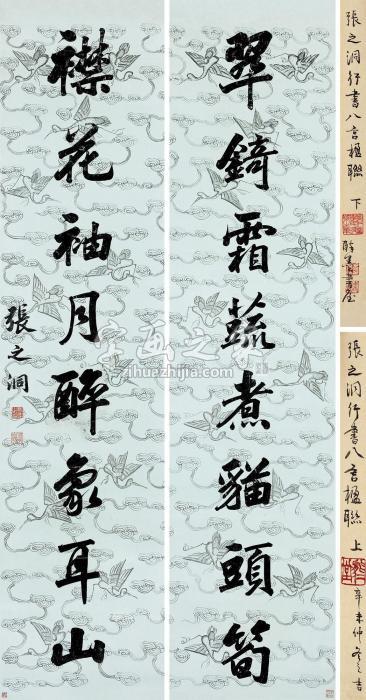 翠錡霜蔬煮貓頭筍
襟花袖月醉象耳山
張之洞
張之洞行書八言楹聯 下
張之洞行書八言楹聯 上
辛未仲冬之吉
字画之家
zihuezhijia.com